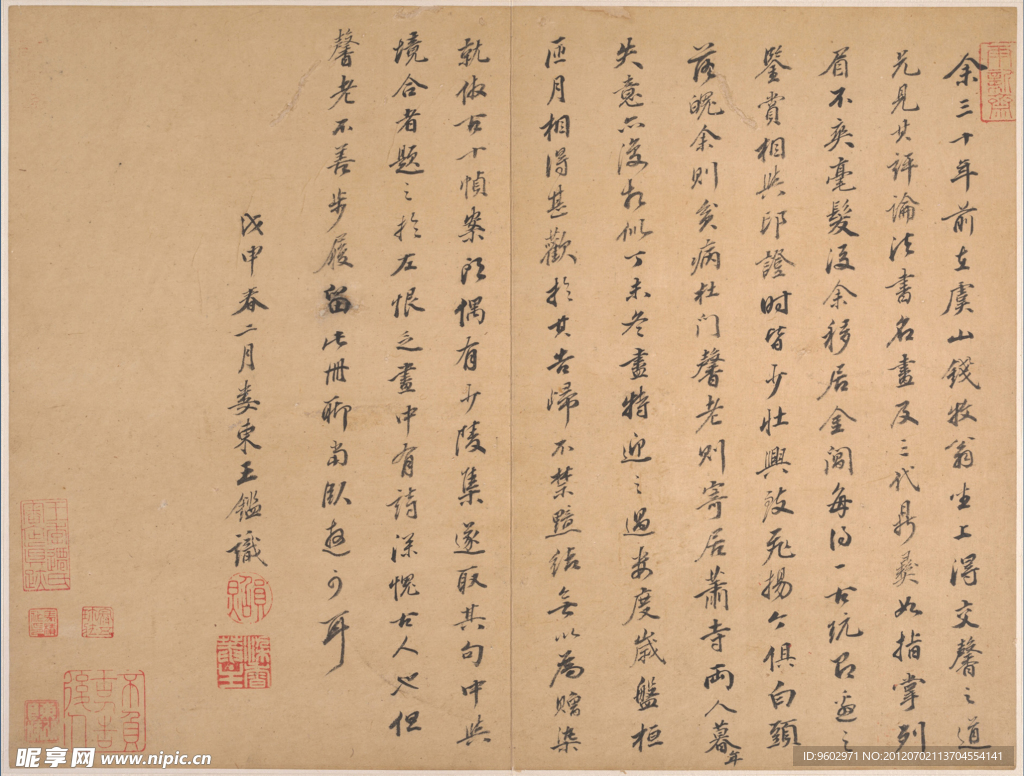 余三十年前在虞山錢牧翁坐上得交馨之道
兄見其評論法書名畫及三代鼎彝如指掌列
眉不爽毫髮後余移居金閶每得一古玩必邀之
鑒賞相與印證時皆少壯興致飛揚今俱白頭
落魄余則貧病杜门馨老則寄居蕭寺兩人暮年
失意亦復相似丁未冬盡特迎之過婁度歲盤桓
匝月相得甚歡於其告歸不禁黯結無以為贈染
就倣古十幀案頭偶有少陵集遂取其句中與
境合者題之於左恨乏畫中有詩深愧古人也但
馨老不善步履留此冊聊當臥遊可耳
戊申春二月婁東王鑑識
昵享网 www.nipic.cn
ID:9602971 NO:20120702113704554141